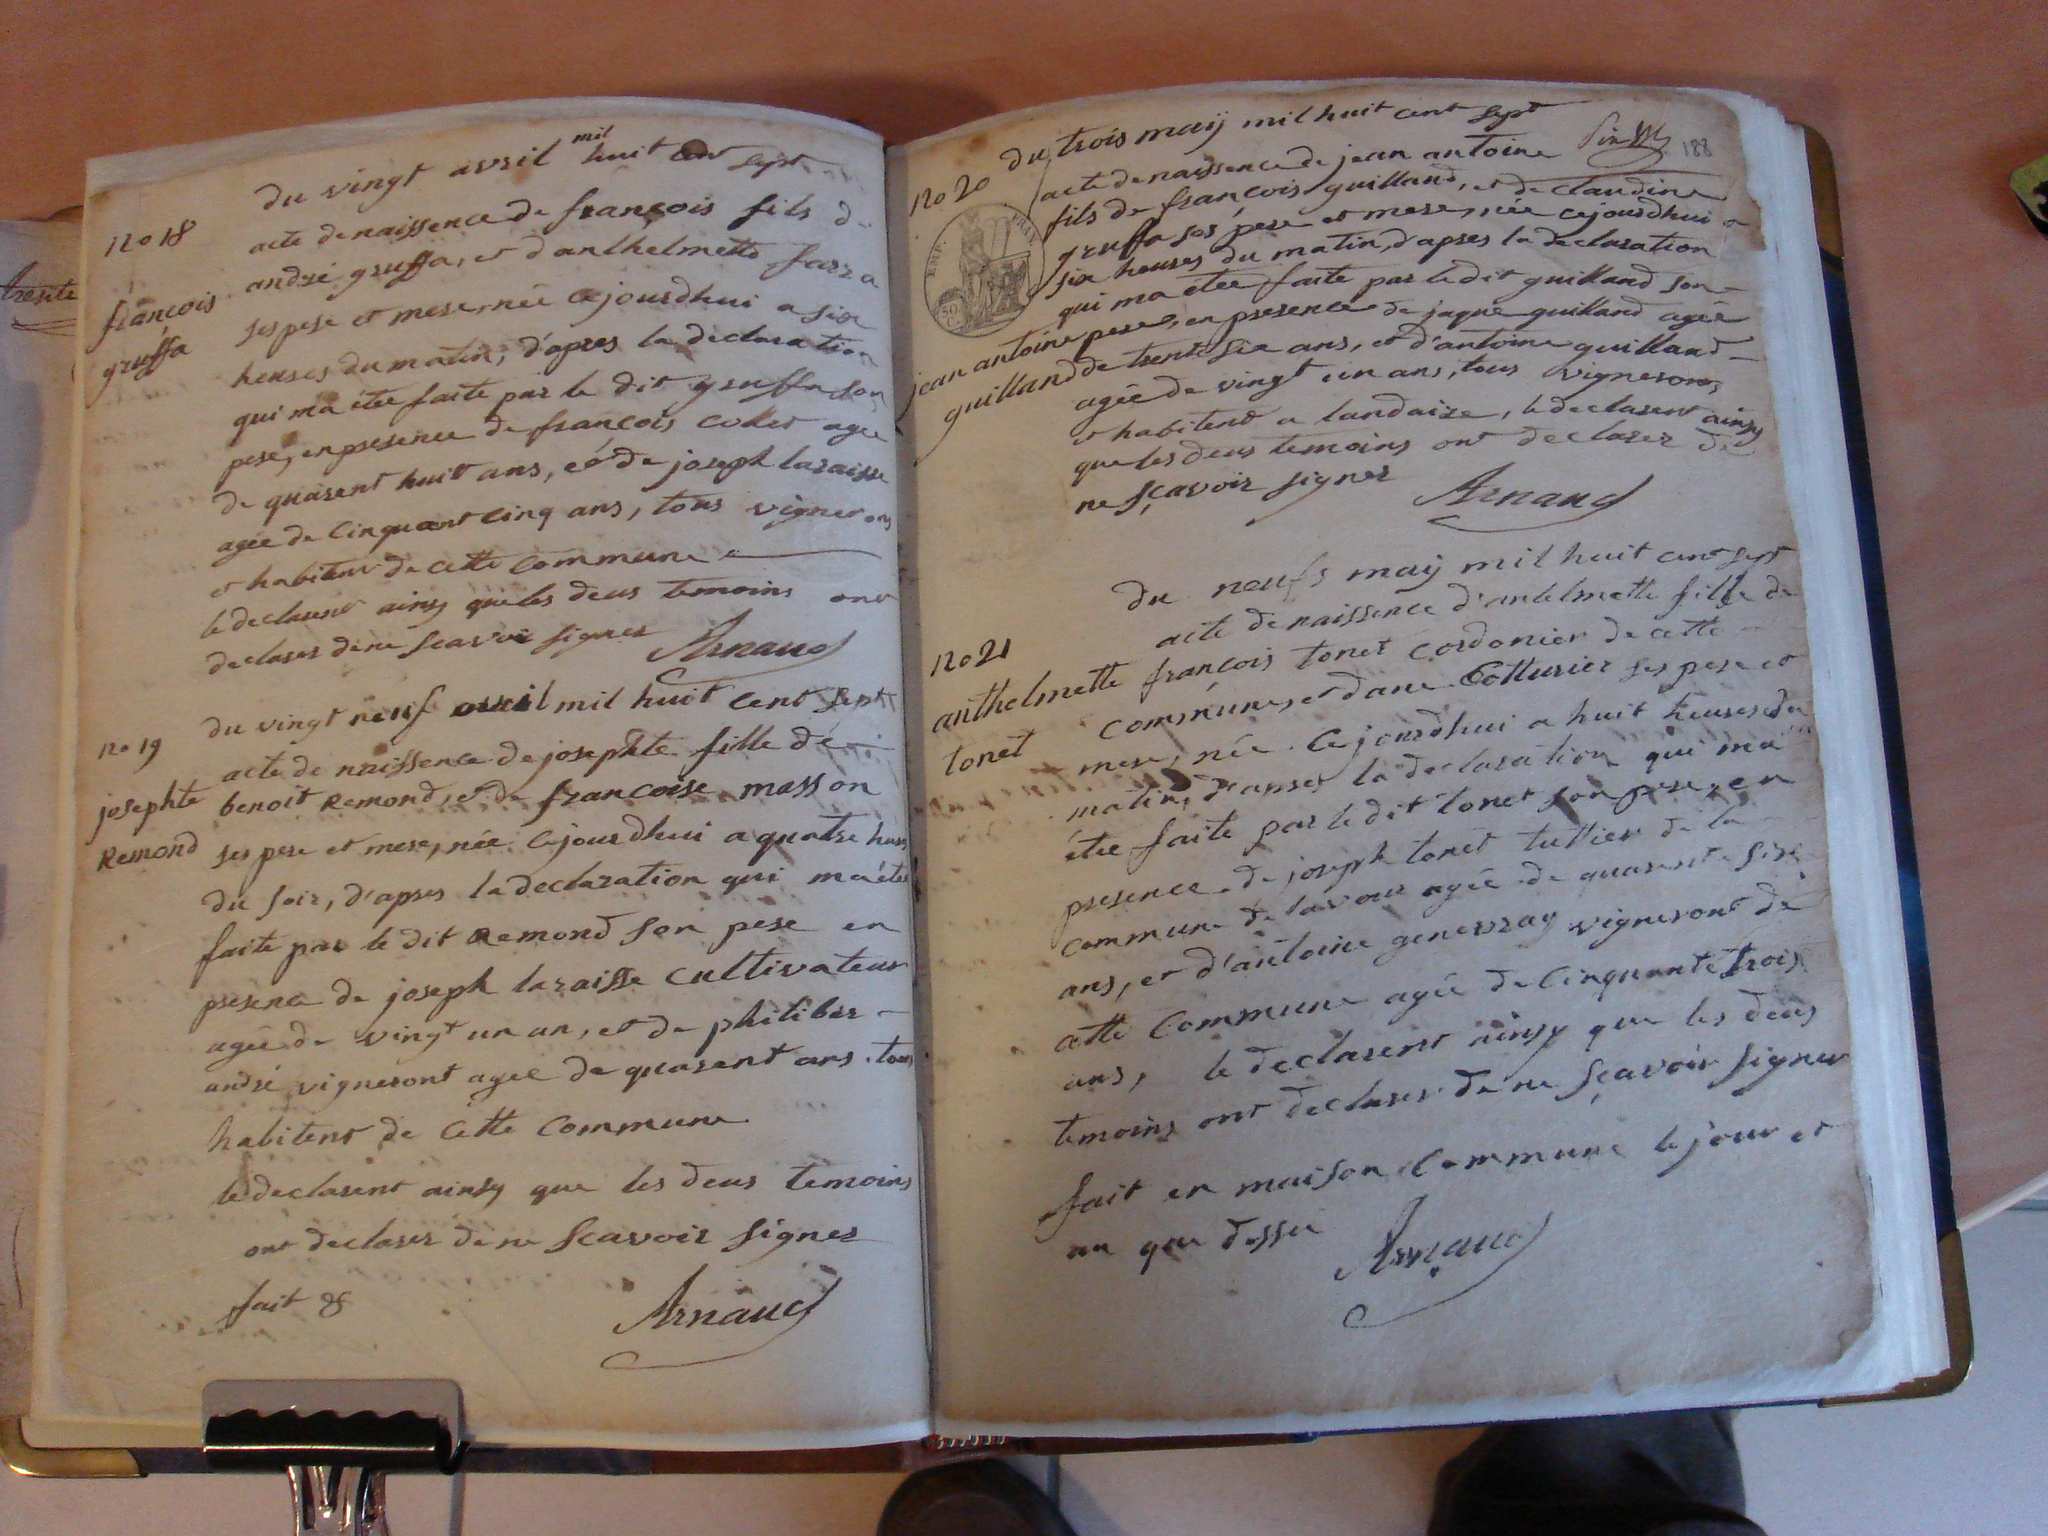 du vingt avril mil huit cent sept
no 18
acte de naissence de françois fils de
andré gruffa, et d'anthelmette farra
françois
gruffa
ses pere et mere, née cejourdhui a six
heures du matin, d'apres la declaration
qui ma étée faite par le dit gruffa son
pere, en presence de françois collet agée
de quarent huit ans, et de joseph laraisse
agée de cinquant cinq ans, tous vignerons
et habitent de cette commune
le declarent ainsy que les deus temoins ont
declarer de ne scavoir signer
Arnaud
du vingt neuf avril mil huit cent sept
no 19
acte de naissence de josephte fille de
josephte
Remond
benoit Remond, et de françoise masson
ses pere et mere, née cejourdhui a quatre heures
du soir, d'apres la declaration qui ma étée
faite par le dit Remond son pere en
presence de joseph laraisse cultivateur
agée de vingt un an, et de philiber
andré vigneront agée de quarent ans tous
habitent de cette commune
le declarent ainsy que les deus temoins
ont declarer de ne scavoir signer
fait &
Arnaud
188
du trois maÿ mil huit cent sept
no 20
acte de naissence de jean antoine
fils de françois guilland, et de claudine
gruffa ses pere et mere, née cejourdhui a
six heures du matin, d'apres la declaration
qui ma étée faite par le dit guilland son
EMP. FRAN.
50 C.
jean antoine
guilland
pere, en presence de jaque guilland agée
de trente six ans, et d'antoine guilland
agée de vingt un ans, tous vignerons
et habitent a landaize, le declarent ainsy
que les deus temoins ont declarer de
ne sçavoir signer
Arnaud
du neufs maÿ mil huit cent sept
no 21
acte de naissence d'antelmette fille de
anthelmette
tonet
françois tonet cordonier de cette
commune, et d'ane Cotturier ses pere et
mere, née cejourdhui a huit heures du
matin, d'apres la declaration qui ma
étée faite par le dit tonet son pere, en
presence de joseph tonet tuttier de la
commune de lavour agée de quarente six
ans, et d'antoine genevray vigneront de
cette commune agée de cinquante trois
ans, le declarent ainsy que les deus
temoins ont declarer de ne sçavoir signer
fait en maison commune le jour et
an que dessu
Arnaud